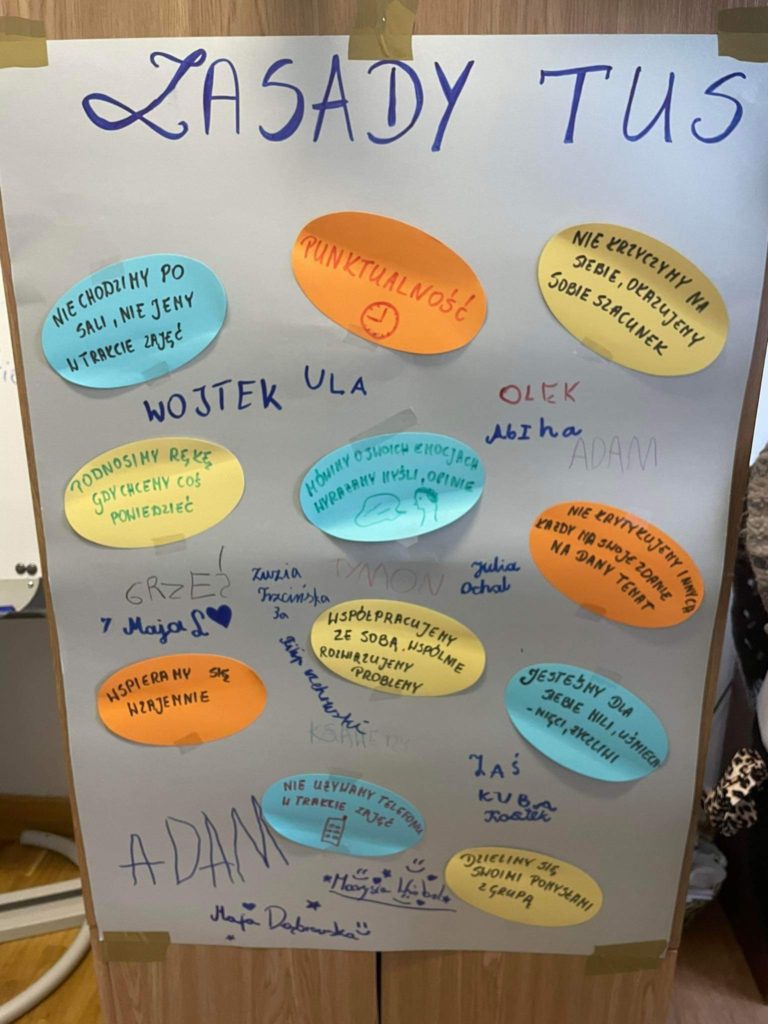 ZASADY TUS
PUNKTUALNOŚĆ
NIE CHODZIMY PO
SALI, NIE JEMY
W TRAKCIE ZAJĘĆ
NIE KRZYCZYMY NA
SIEBIE, OKAZUJEMY
SOBIE SZACUNEK
WOJTEK
ULA
OLEK
ADAM
PODNOSIMY RĘKĘ,
GDY CHCEMY COŚ
POWIEDZIEĆ
MÓWIMY O SWOICH EMOCJACH
WYRAŻAMY MYŚLI, OPINIE
NIE KRYTYKUJEMY INNYCH
KAŻDY MA SWOJE ZDANIE
NA DANY TEMAT
GRZEŚ
Zuzia
Trzcińska
3a
TYMON
Julia
Ochal
Maja L
WSPÓŁPRACUJEMY
ZE SOBĄ, WSPÓLNIE
ROZWIĄZUJEMY
PROBLEMY
WSPIERAMY SIĘ
WZAJEMNIE
JESTEŚMY DLA
SIEBIE MILI, UŚMIECH
-NIĘCI, ŻYCZLIWI
Filip
NIE UŻYWAMY TELEFONU
W TRAKCIE ZAJĘĆ
KUBA
ADAM
DZIELIMY SIĘ
SWOIMI POMYSŁAMI
Z GRUPĄ
Marysia
Maja Dąbrowska